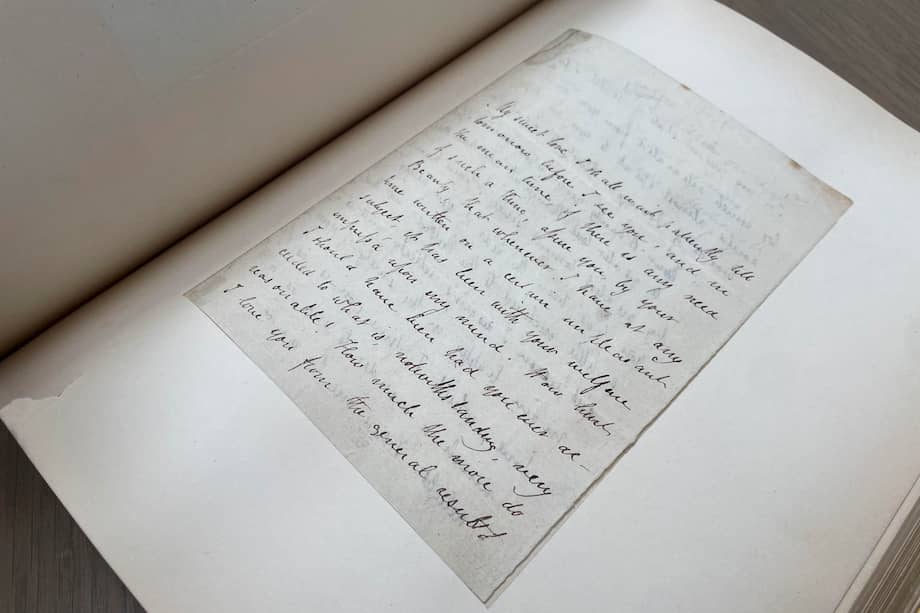 My sweet love, I shall wait patiently till
tomorrow before I see you, and in
the mean time, if there is any need
of such a thing, assure you by your
Beauty, that whenever I have at any
time written on a certain unpleasant
subject, it has been with your welfare
impress'd upon my mind. How hurt
I should have been had you ever ac-
ceded to what is, notwithstanding, very
reasonable! How much the more do
I love you from the general result!